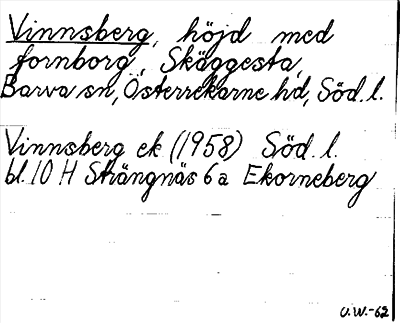 Vinnsberg, höjd med
fornborg, Skäggesta,
Barva sn, Österrekarne hd, Söd. l.
Vinnsberg ek (1958) Söd. l.
bl. 10 H Strängnäs 6a Ekorneberg
U.W.-62